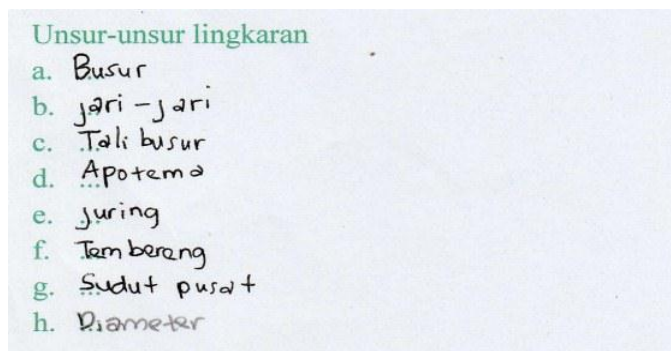 Unsur-unsur lingkaran
a. Busur
b. jari-jari
c. Tali busur
d. Apotema
e. juring
f. Tembereng
g. Sudut pusat
h. Diameter